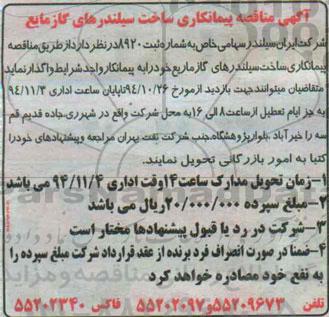 آگهی مناقصه پیمانکاری ساخت سیلندرهای گازمایع
شرکت ایران سیلندر سهامی خاص به شماره ثبت ۸۹۲۰ در نظر دارد از طریق مناقصه
پیمانکاری ساخت سیلندرهای گاز مایع خود را به پیمانکار واجد شرایط واگذار نماید
متقاضیان میتوانند جهت بازدید از مورخ ۹۴/۱۰/۲۶ تا پایان ساعت اداری ۹۴/۱۱/۳
به جز ایام تعطیل از ساعت ۸ الی ۱۶ به محل شرکت واقع در شهرری، جاده قدیم قم
سه را خیر آباد، بلوار پژوهشگاه، جنب شرکت نفت بهران مراجعه و پیشنهادهای خود را
کتبا به امور بازرگانی تحویل نمایند.
۱-زمان تحویل مدارک ساعت ۱۴ وقت اداری ۹۴/۱۱/۴ می باشد
۲-مبلغ سپرده ۲۰/۰۰۰/۰۰۰ ریال می باشد
۳-شرکت در رد یا قبول پیشنهادها مختار است
۴-ضمنا در صورت انصراف فرد برنده از عقد قرارداد شرکت مبلغ سپرده را
به نفع خود مصادره خواهد کرد
تلفن ۵۵۲۰۹۶۷۳ و ۵۵۲۰۲۰۹۷ فاکس ۵۵۲۰۲۳۴۰